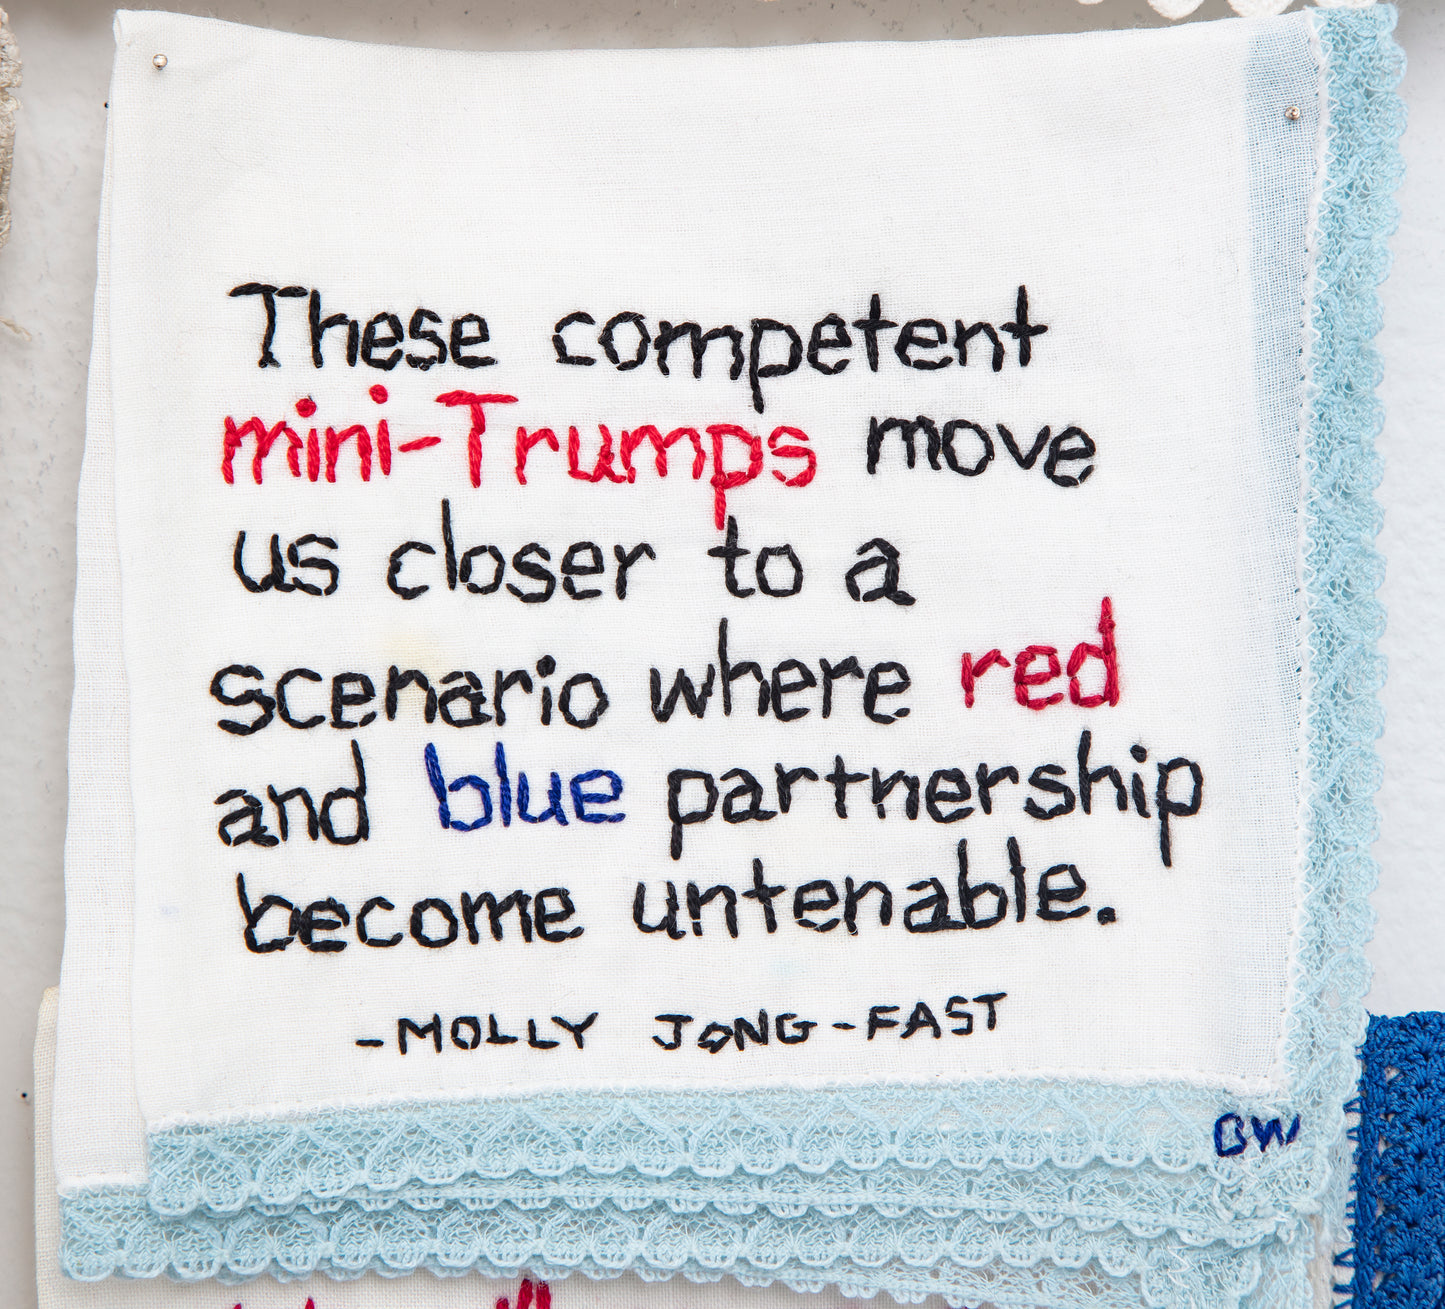 These competent
mini-Trumps move
us closer to a
scenario where red
and blue partnership
become untenable.
-MOLLY JONG-FAST
BW